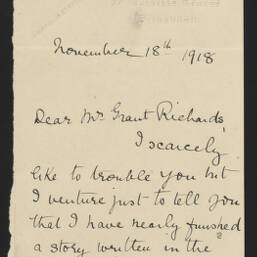 November 18th 1918
Dear Mr Grant Richards,
I scarcely
like to trouble you but
I venture just to tell you
that I have nearly finished
a story written in the